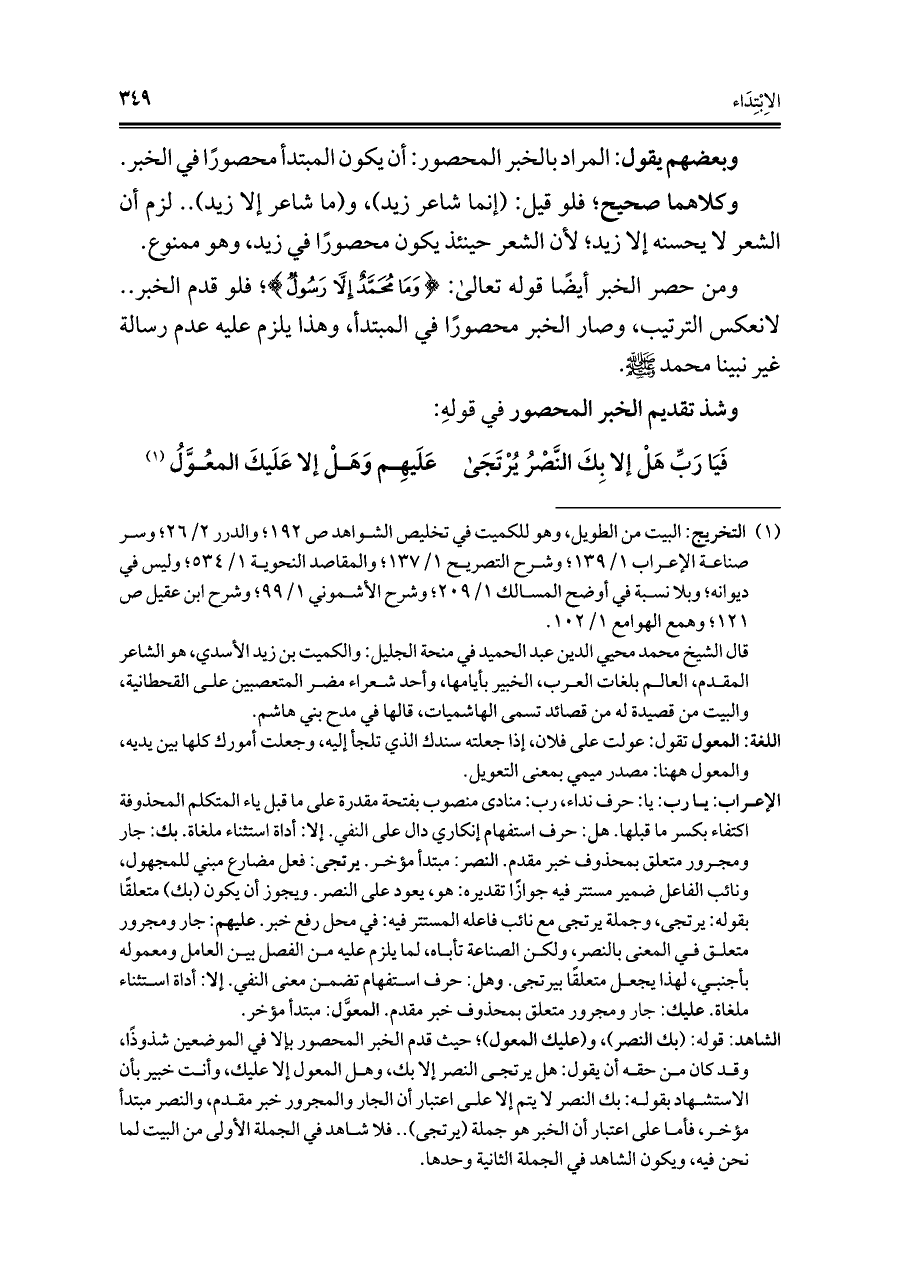 الاِبْتِدَاء
٣٤٩
وبعضهم يقول: المراد بالخبر المحصور: أن يكون المبتدأ محصورًا في الخبر.
وكلاهما صحيح؛ فلو قيل: (إنما شاعر زيد)، و(ما شاعر إلا زيد).. لزم أن
الشعر لا يحسنه إلا زيد؛ لأن الشعر حينئذ يكون محصورًا في زيد، وهو ممنوع.
ومن حصر الخبر أيضًا قوله تعالىٰ: ﴿وَمَا مُحَمَّدٌ إِلَّا رَسُولٌ﴾؛ فلو قدم الخبر..
لانعكس الترتيب، وصار الخبر محصورًا في المبتدأ، وهذا يلزم عليه عدم رسالة
غير نبينا محمد ﷺ.
وشذ تقديم الخبر المحصور في قولهِ:
فَيَا رَبِّ هَلْ إلا بِكَ النَّصْرُ يُرْتَجَىٰ عَلَيهِـم وَهَـلْ إلا عَلَيكَ المعُـوَّلُ (١)
(١) التخريج: البيت من الطويل، وهو للكميت في تخليص الشواهد ص ١٩٢؛ والدرر ٢/ ٢٦؛ وسر
صناعة الإعراب ١/ ١٣٩؛ وشرح التصريح ١/ ١٣٧؛ والمقاصد النحوية ١/ ٥٣٤؛ وليس في
ديوانه؛ وبلا نسبة في أوضح المسالك ١/ ٢٠٩؛ وشرح الأشموني ١/ ٩٩؛ وشرح ابن عقيل ص
١٢١؛ وهمع الهوامع ١/ ١٠٢.
قال الشيخ محمد محيي الدين عبد الحميد في منحة الجليل: والكميت بن زيد الأسدي، هو الشاعر
المقدم، العالم بلغات العرب، الخبير بأيامها، وأحد شعراء مضر المتعصبين على القحطانية،
والبيت من قصيدة له من قصائد تسمى الهاشميات، قالها في مدح بني هاشم.
اللغة: المعول تقول: عولت على فلان، إذا جعلته سندك الذي تلجأ إليه، وجعلت أمورك كلها بين يديه،
والمعول ههنا: مصدر ميمي بمعنى التعويل.
الإعراب: يا رب: يا: حرف نداء، رب: منادى منصوب بفتحة مقدرة على ما قبل ياء المتكلم المحذوفة
اكتفاء بكسر ما قبلها. هل: حرف استفهام إنكاري دال على النفي. إلا: أداة استثناء ملغاة. بك: جار
ومجرور متعلق بمحذوف خبر مقدم. النصر: مبتدأ مؤخر. يرتجى: فعل مضارع مبني للمجهول،
ونائب الفاعل ضمير مستتر فيه جوازًا تقديره: هو، يعود على النصر. ويجوز أن يكون (بك) متعلقًا
بقوله: يرتجى، وجملة يرتجى مع نائب فاعله المستتر فيه: في محل رفع خبر. عليهم: جار ومجرور
متعلق في المعنى بالنصر، ولكن الصناعة تأباه، لما يلزم عليه من الفصل بين العامل ومعموله
بأجنبي، لهذا يجعل متعلقًا بيرتجى. وهل: حرف استفهام تضمن معنى النفي. إلا: أداة استثناء
ملغاة. عليك: جار ومجرور متعلق بمحذوف خبر مقدم. المعوَّل: مبتدأ مؤخر.
الشاهد: قوله: (بك النصر)، و(عليك المعول)؛ حيث قدم الخبر المحصور بإلا في الموضعين شذوذًا،
وقد كان من حقه أن يقول: هل يرتجى النصر إلا بك، وهل المعول إلا عليك، وأنت خبير بأن
الاستشهاد بقوله: بك النصر لا يتم إلا على اعتبار أن الجار والمجرور خبر مقدم، والنصر مبتدأ
مؤخر، فأما على اعتبار أن الخبر هو جملة (يرتجى).. فلا شاهد في الجملة الأولى من البيت لما
نحن فيه، ويكون الشاهد في الجملة الثانية وحدها.